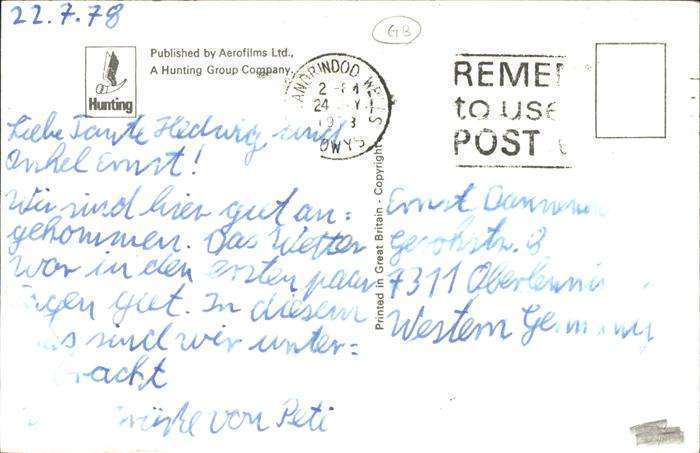 22.7.78
GB
Published by Aerofilms Ltd.,
A Hunting Group Company
Hunting
LLANDRINDOD WELLS
2 PM
24
POWYS
REME
to use
POST
Liebe Tante Hedwig und
Onkel Ernst!
Wir sind hier gut an=
gekommen. Das Wetter
war in den ersten paar
Tagen gut. In diesem
sind wir unter=
bracht
Grüße von Peti
Printed in Great Britain - Copyright
Ernst
Gerokstr. 3
7311
Western Germany